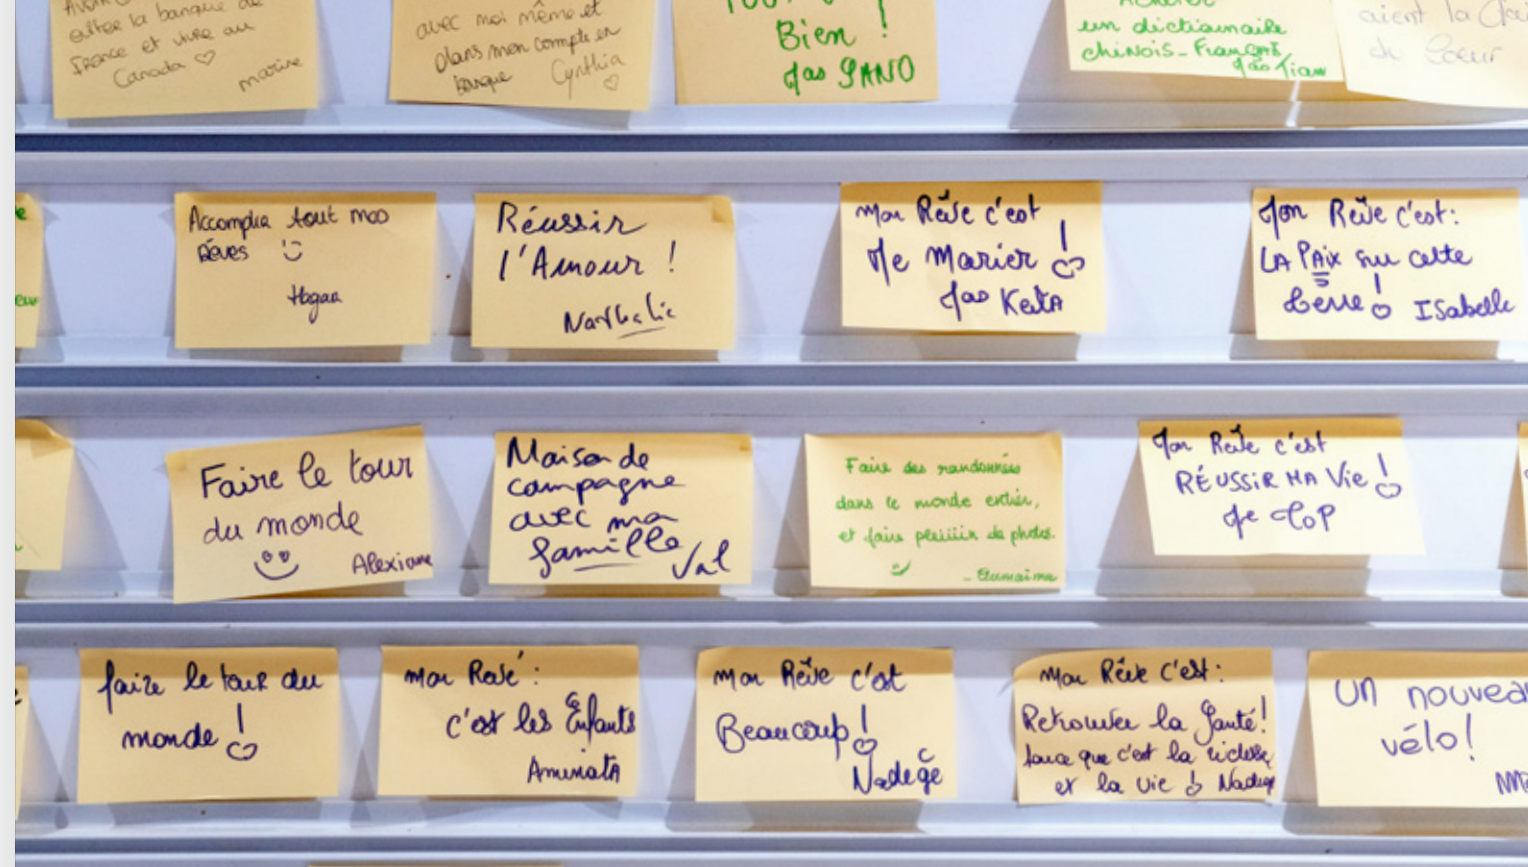 entrer la banque de
France et vivre au
Canada
marine
avec moi même et
dans mon compte en
banque Cynthia
Bien !
Jas SANO
un dictionnaire
chinois-Français
Jas Tian
aient la
du Coeur
Accomplir tout mos
Rêves
Réussir
l'Amour !
Nathalie
mon Rêve c'est
Me Marier !
Jas Keita
Mon Rêve c'est:
LA PAix sur cette
terre ! ISabelle
Faire le tour
du monde
Alexiane
Maison de
campagne
avec ma
famille Val
Faire des randonnées
dans le monde entier,
et faire pleiiiin de photos.
- Oumaima
Mon Rêve c'est
RÉUSSiR MA Vie !
Je ToP
faire le tour du
monde !
mon Revé :
c'est les Enfants
AminatA
mon Rêve c'est
Beaucoup !
Nadege
Mon Rêve c'est :
Retrouver la Santé!
que c'est la richesse
et la vie ! Nadege
UN nouveau
vélo!